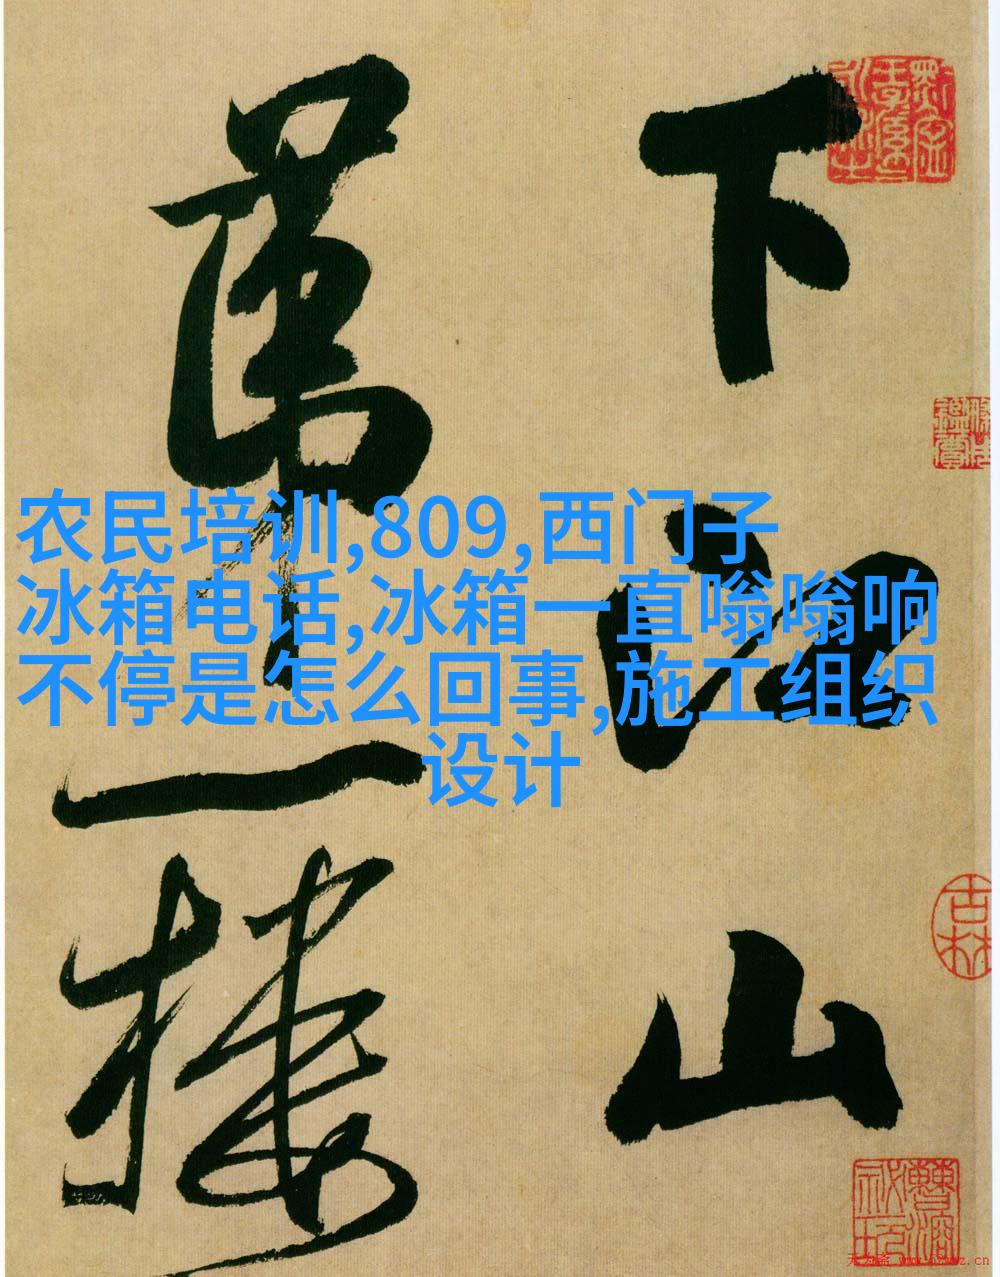 下江山
第一樓
农民培训,809,西门子
冰箱电话,冰箱一直嗡嗡响
不停是怎么回事,施工组织
设计